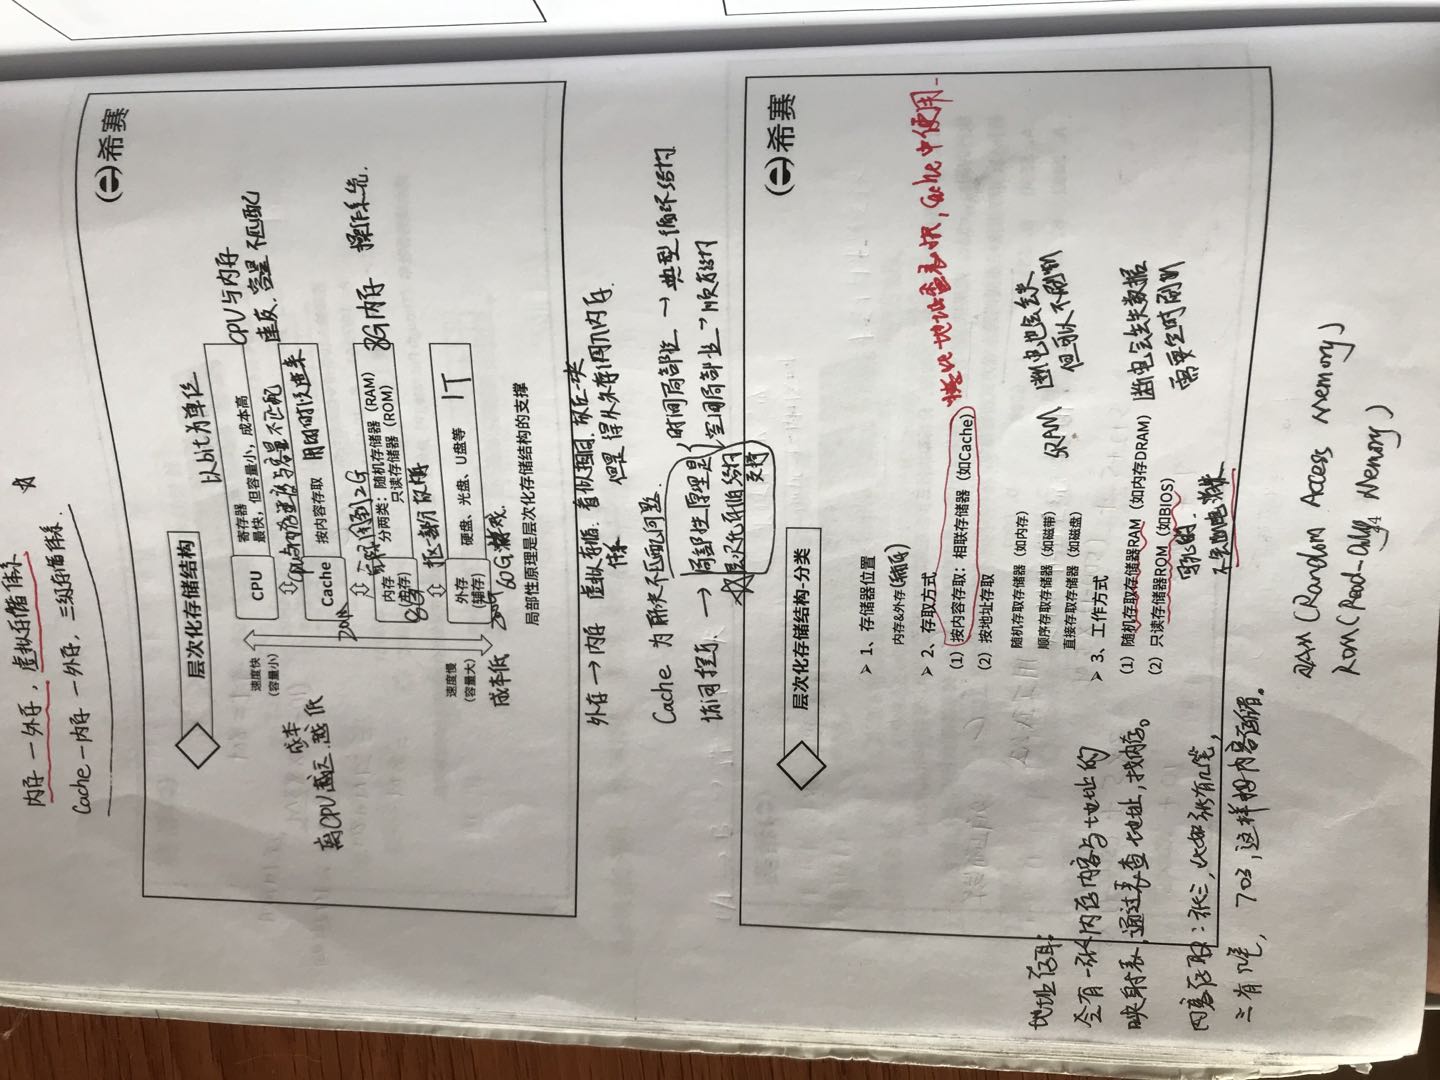 内存—外存，虚拟存储体系 ☆
Cache—内存—外存，三级存储体系.
希赛
层次化存储结构
以bit为单位
速度快
（容量小）
CPU
寄存器
最快，但容量小，成本高
CPU与内存
速度、容量不匹配
Cpu与内存速度与容量不匹配
成本
离CPU越远.越低
Cache
按内容存取
用的时候进来
20M
实际用到2G
内存
(主存)
8G
分两类：随机存储器（RAM）
只读存储器（ROM）
8G内存
操作系统.
抠一部分放悔
速度慢
（容量大）
外存
(辅存)
硬盘、光盘、U盘等
1T
成本低
200G
60G游戏.
局部性原理是层次化存储结构的支撑
外存→内存 虚拟存储. 看似相同.放在一块
体系 但是得从外存调入内存.
Cache 为解决不匹配问题.
时间局部性→典型循环结构
访问程序.→局部性原理是
空间局部性→顺序结构
层次化存储结构
支撑
希赛
层次化存储结构-分类
➢ 1、存储器位置
内存&外存(辅存)
➢ 2、存取方式
（1）按内容存取：相联存储器（如Cache）
比地址查表快，Cache中使用
（2）按地址存取
随机存取存储器（如内存）
顺序存取存储器（如磁带）
直接存取存储器（如磁盘）
SRAM
断电也会丢失
但可以不刷新
➢ 3、工作方式
（1）随机存取存储器RAM（如内存DRAM）
断电会丢失数据
需要定时刷新
（2）只读存储器ROM（如BIOS）
写死的.
不会断电消失
地址存取：
会有一张内存内容与地址的
映射表，通过表查地址，找内存。
内容存取：张三，比如张有几笔，
三有几笔，703，这样把内容存储。
RAM（Random Access Memory）
ROM（Read-Only Memory）
24